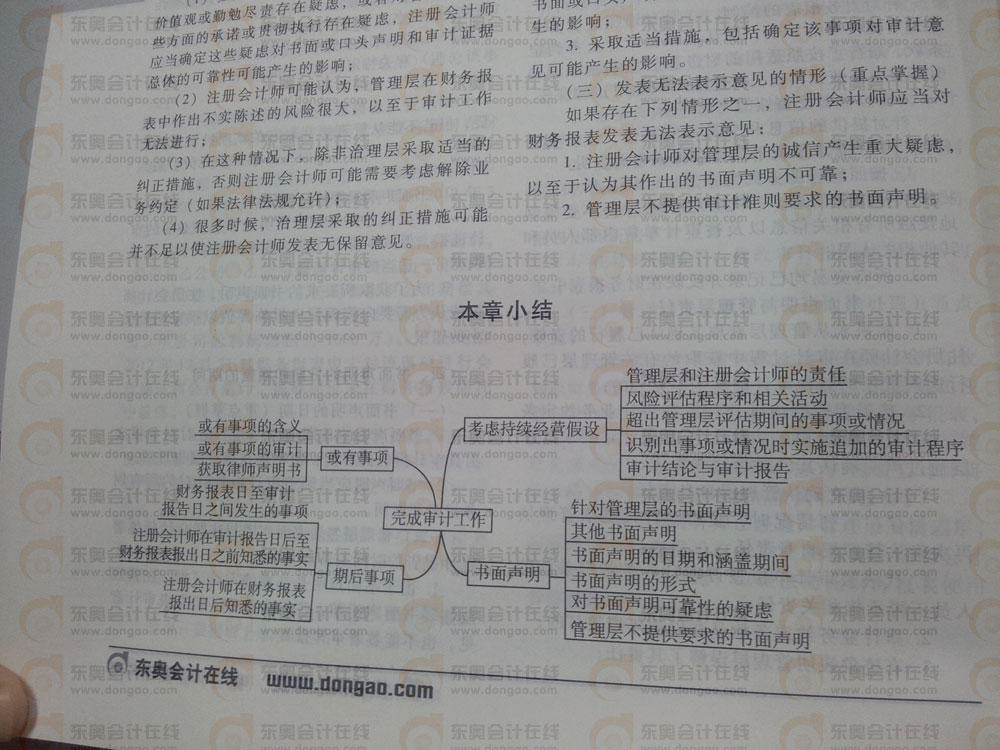 价值观或勤勉尽责存在疑虑，或者对
些方面的承诺或贯彻执行存在疑虑，注册会计师
应当确定这些疑虑对书面或口头声明和审计证据
总体的可靠性可能产生的影响；
（2）注册会计师可能认为，管理层在财务报
表中作出不实陈述的风险很大，以至于审计工作
无法进行；
（3）在这种情况下，除非治理层采取适当的
纠正措施，否则注册会计师可能需要考虑解除业
务约定（如果法律法规允许）；
（4）很多时候，治理层采取的纠正措施可能
并不足以使注册会计师发表无保留意见。
书面或口头
生的影响；
3. 采取适当措施，包括确定该事项对审计意
见可能产生的影响。
（三）发表无法表示意见的情形（重点掌握）
如果存在下列情形之一，注册会计师应当对
财务报表发表无法表示意见：
1. 注册会计师对管理层的诚信产生重大疑虑，
以至于认为其作出的书面声明不可靠；
2. 管理层不提供审计准则要求的书面声明。
本章小结
完成审计工作
或有事项
或有事项的含义
或有事项的审计
获取律师声明书
期后事项
财务报表日至审计
报告日之间发生的事项
注册会计师在审计报告日后至
财务报表报出日之前知悉的事实
注册会计师在财务报表
报出日后知悉的事实
考虑持续经营假设
管理层和注册会计师的责任
风险评估程序和相关活动
超出管理层评估期间的事项或情况
识别出事项或情况时实施追加的审计程序
审计结论与审计报告
书面声明
针对管理层的书面声明
其他书面声明
书面声明的日期和涵盖期间
书面声明的形式
对书面声明可靠性的疑虑
管理层不提供要求的书面声明
东奥会计在线
www.dongao.com